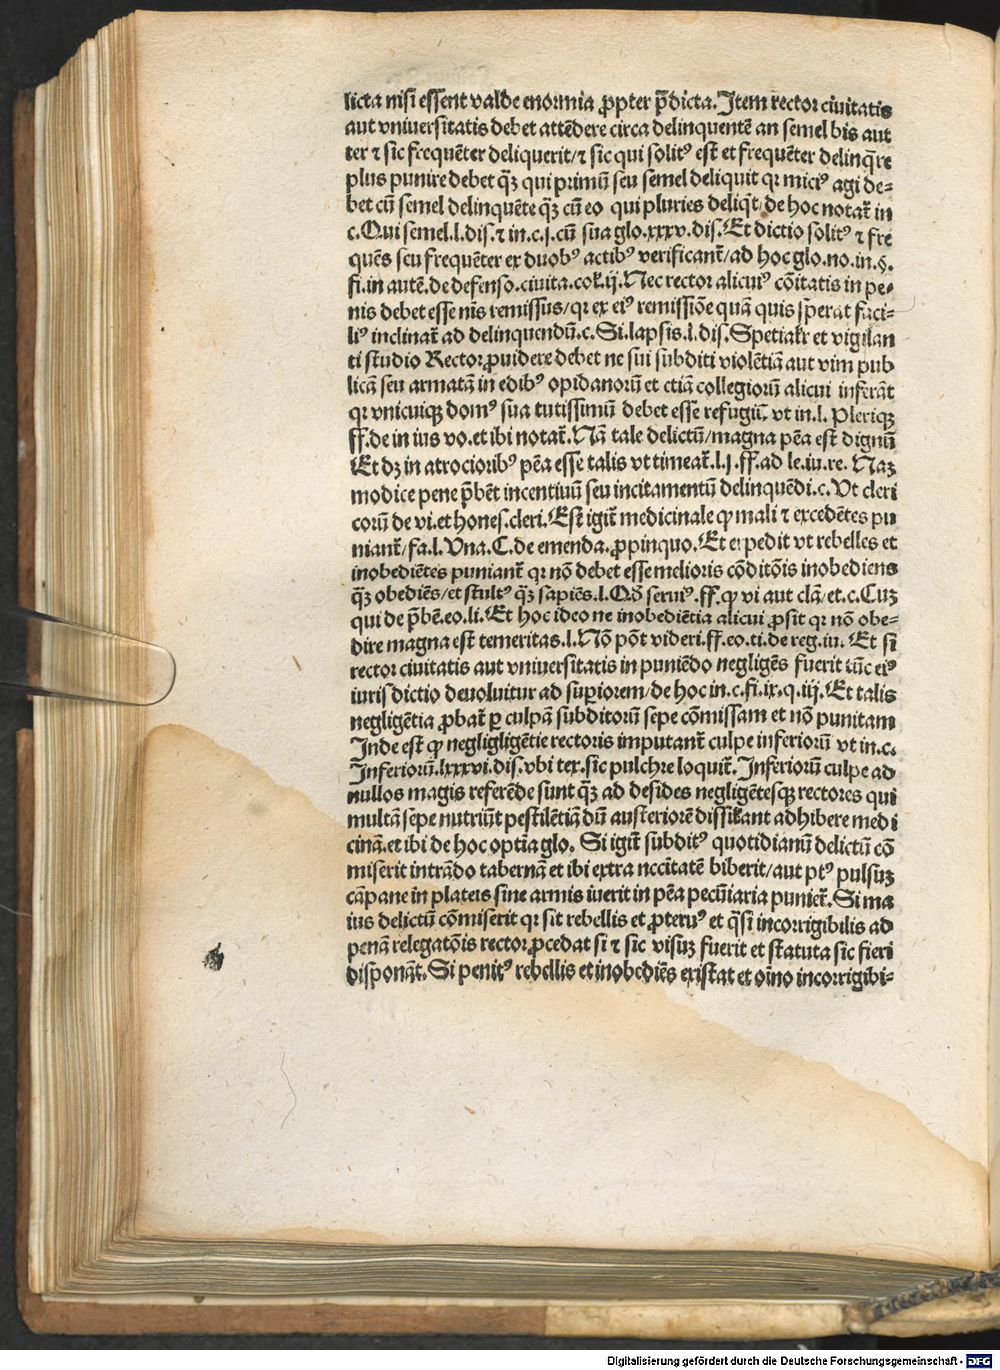 licta nisi essent valde enormia ꝓpter p̄dicta. Item rector ciuitatis
aut vniuersitatis debet attēdere circa delinquentē an semel bis aut
ter ⁊ sic frequēter deliquerit/ ⁊ sic qui solitꝰ est et frequēter delinq̄re
plus punire debet q̄ꝫ qui primū seu semel deliquit qꝛ miciꝰ agi de⸗
bet cū semel delinquēte q̄ꝫ cū eo qui pluries deliq̄t/ de hoc notat᷑ in
c. Qui semel.l.dis.⁊ in.c.j.cū sua glo.xxxv.dis. Et dictio solitꝰ ⁊ fre
quēs seu frequēter ex duobꝰ actibꝰ verificant᷑/ ad hoc glo.no.in.§.
fi.in autē.de defenso.ciuita.col.ij. Nec rector alicuiꝰ cōitatis in pe⸗
nis debet esse nīs remissus/ qꝛ ex eiꝰ remissiōe quā quis sperat faci⸗
liꝰ inclinat᷑ ad delinquendū.c. Si.lapsis.l.dis. Spetialr̄ et vigilan
ti studio Rector ꝓuidere debet ne sui subditi violētiā aut vim pub
licā seu armatā in edibꝰ opidanorū et etiā collegiorū alicui inferāt
qꝛ vnicuiqꝫ domꝰ sua tutissimū debet esse refugiū. vt in.l. Pleriqꝫ
ff.de in ius vo.et ibi notat᷑. Nā tale delictū/ magna pēa est dignū
Et dꝫ in atrocioribꝰ pēa esse talis vt timeat᷑.l.j.ff.ad le.iu.re. Naꝫ
modice pene p̄bēt incentiuū seu incitamentū delinquēdi.c. Vt cleri
corū de vi.et hones.cleri. Est igit᷑ medicinale ꝙ mali ⁊ excedētes pu
niant᷑/ fa.l. Vna. C. de emenda.ꝓpinquo. Et expedit vt rebelles et
inobediētes puniant᷑ qꝛ nō debet esse melioris cōditōis inobediens
q̄ꝫ obediēs/ et stultꝰ q̄ꝫ sapiēs.l. Qd̄ seruiꝰ.ff. ꝙ vi aut clā/ et.c. Cuꝫ
qui de p̄bē.eo.li. Et hoc ideo ne inobediētia alicui ꝓsit qꝛ nō obe⸗
dire magna est temeritas.l. Nō pōt videri.ff.eo.ti.de reg.iu. Et si
rector ciuitatis aut vniuersitatis in puniēdo negligēs fuerit tūc eiꝰ
iurisdictio deuoluitur ad suꝑiorem/ de hoc in.c.fi.ix.q.iij. Et talis
negligētia ꝓbat᷑ ꝑ culpā subditorū sepe cōmissam et nō punitam
Inde est ꝙ negligligētie rectoris imputant᷑ culpe inferiorū vt in.c.
Inferiorū.lxxxvi.dis.vbi tex.sic pulchre loquit᷑. Inferiorū culpe ad
nullos magis referēde sunt q̄ꝫ ad desides negligētesqꝫ rectores qui
multā sepe nutriūt pestilētiā dū austeriorē dissilant adhibere medi
cinā.et ibi de hoc optīa glo. Si igit᷑ subditꝰ quotidianū delictū cō
miserit intrādo tabernā et ibi extra nccitatē biberit/ aut ptꝰ pulsuꝫ
cāpane in plateis sine armis iuerit in pēa pecūiaria puniet᷑. Si ma
ius delictū cōmiserit qꝛ sit rebellis et ꝓteruꝰ et q̄si incorrigibilis ad
penā relegatōis rector ꝓcedat si ⁊ sic visuꝫ fuerit et statuta sic fieri
disponāt. Si penitꝰ rebellis et inobediēs existat et oīno incorrigibi⸗
Digitalisierung gefördert durch die Deutsche Forschungsgemeinschaft - DFG